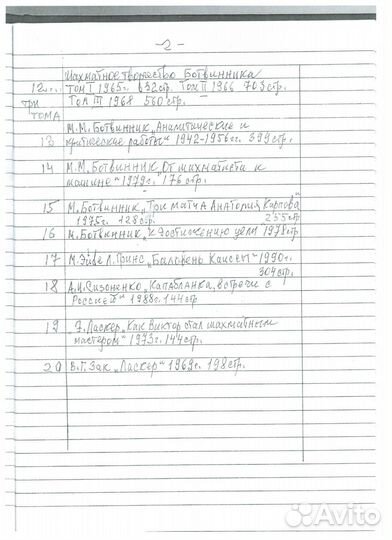 -2-
Шахматное творчество Ботвинника
12... Том I 1965г. 632стр. Том II 1966 703стр.
три Том III 1968 560стр.
тома
М.М. Ботвинник „Аналитические и
13 критические работы" 1942-1956гг. 399стр.
14 М.М. Ботвинник „От шахматиста к
машине" 1979г. 176стр.
15 М. Ботвинник „Три матча Анатолия Карпова"
1975г. 128стр. 255стр
16 М. Ботвинник „К достижению цели 1978стр
17 М. Эйве Л. Принс „Баловень Каиссы" 1990г.
304стр.
18 А.И. Сизоненко „Капабланка, встречи с
Россией" 1988г. 144стр
19 Э. Ласкер „Как Виктор стал шахматным
мастером" 1973г. 144стр.
20 В.Г. Зак „Ласкер" 1963г. 198стр.
Avito